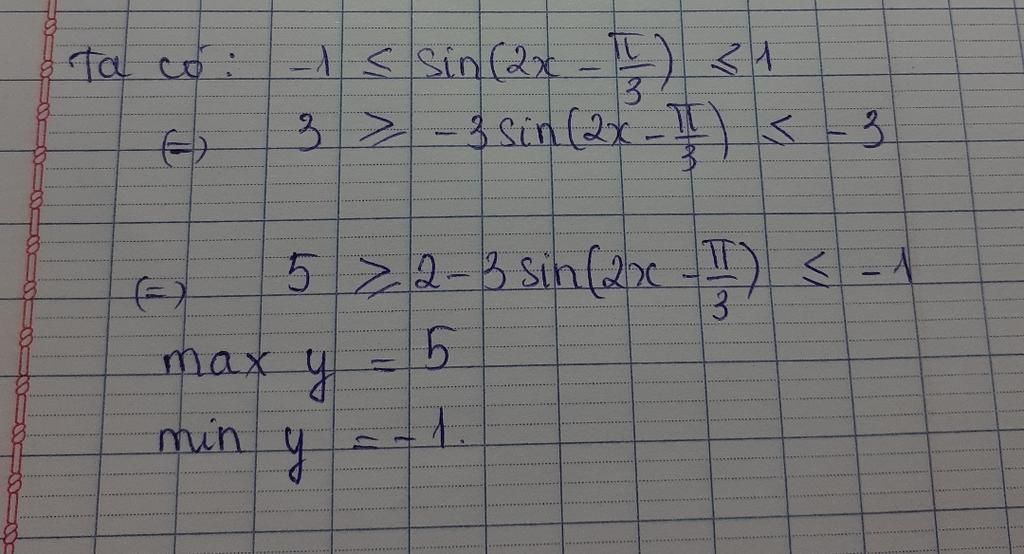 Ta có: -1 ≤ sin(2x - π/3) ≤ 1
(=) 3 ≥ -3 sin(2x - π/3) ≤ -3
(=) 5 ≥ 2 - 3 sin(2x - π/3) ≤ -1
max y = 5
min y = -1.